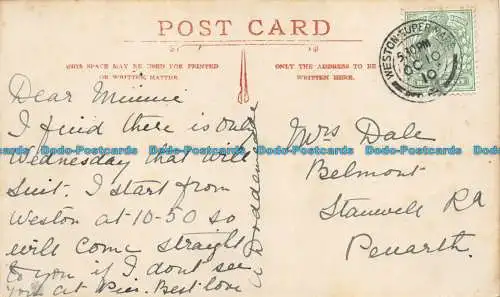 POST CARD
THIS SPACE MAY BE USED FOR PRINTED
OR WRITTEN MATTER.
ONLY THE ADDRESS TO BE
WRITTEN HERE.
WESTON-SUPER-MARE
5.10PM
OC 10
10
Dear Minnie
I find there is only
Wednesday that will
suit. I start from
Weston at 10-50 so
will come straight
to you if I dont see
you at Pier. Best love
Mrs Dale
Belmont
Stanwell Rd
Penarth.
Dodo-Postcards Dodo-Postcards Dodo-Postcards Dodo-Postcards